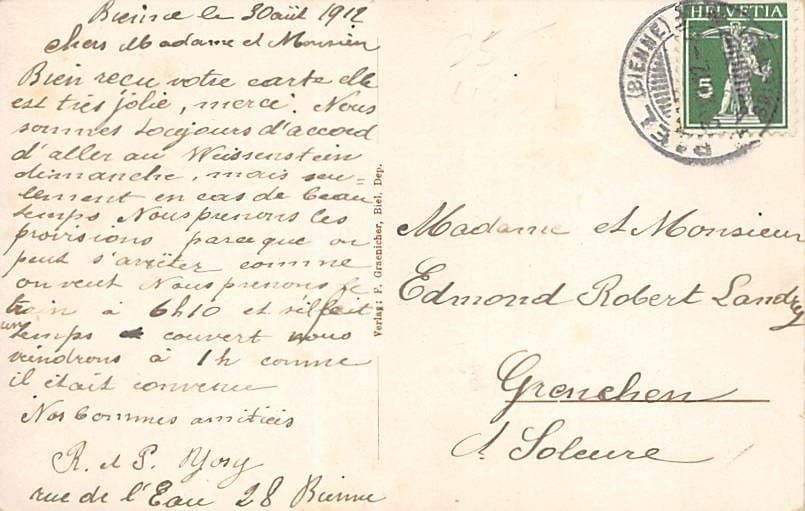 Bienne le 30 août 1912
chers Madame et Monsieur
Bien reçu votre carte elle
est très jolie, merci. Nous
sommes toujours d'accord
d'aller au Weissenstein
dimanche, mais seu-
lement en cas de beau
temps Nous prenons les
provisions parceque on
peut s'arrêter comme
on veut Nous prenons le
train à 6h10 et s'il fait
un temps couvert nous
viendrons à 1h comme
il était convenu
Nos bonnes amitiés
R. et P.
rue de l'Eau 28 Bienne
Verlag: F. Graenicher, Biel, Dep.
HELVETIA
5
BIEL (BIENNE)
Madame et Monsieur
Edmond Robert Landry
Grenchen
Soleure